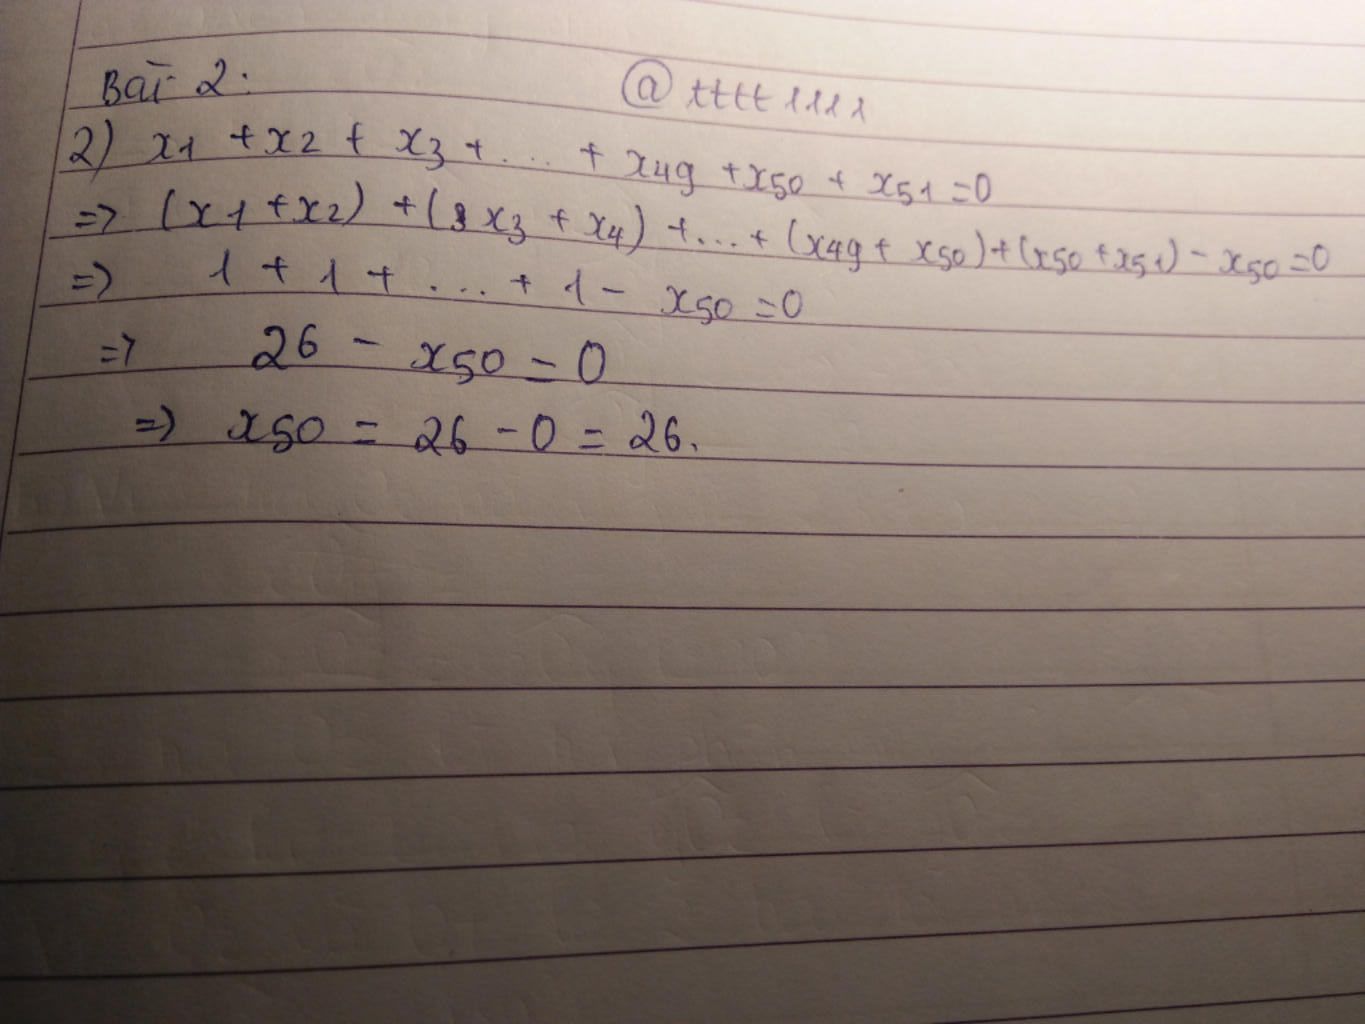 Bài 2:
@tttt1111
2) x1 + x2 + x3 + ... + x49 + x50 + x51 = 0
=> (x1 + x2) + (x3 + x4) + ... + (x49 + x50) + (x50 + x51) - x50 = 0
=> 1 + 1 + ... + 1 - x50 = 0
=> 26 - x50 = 0
=> x50 = 26 - 0 = 26.